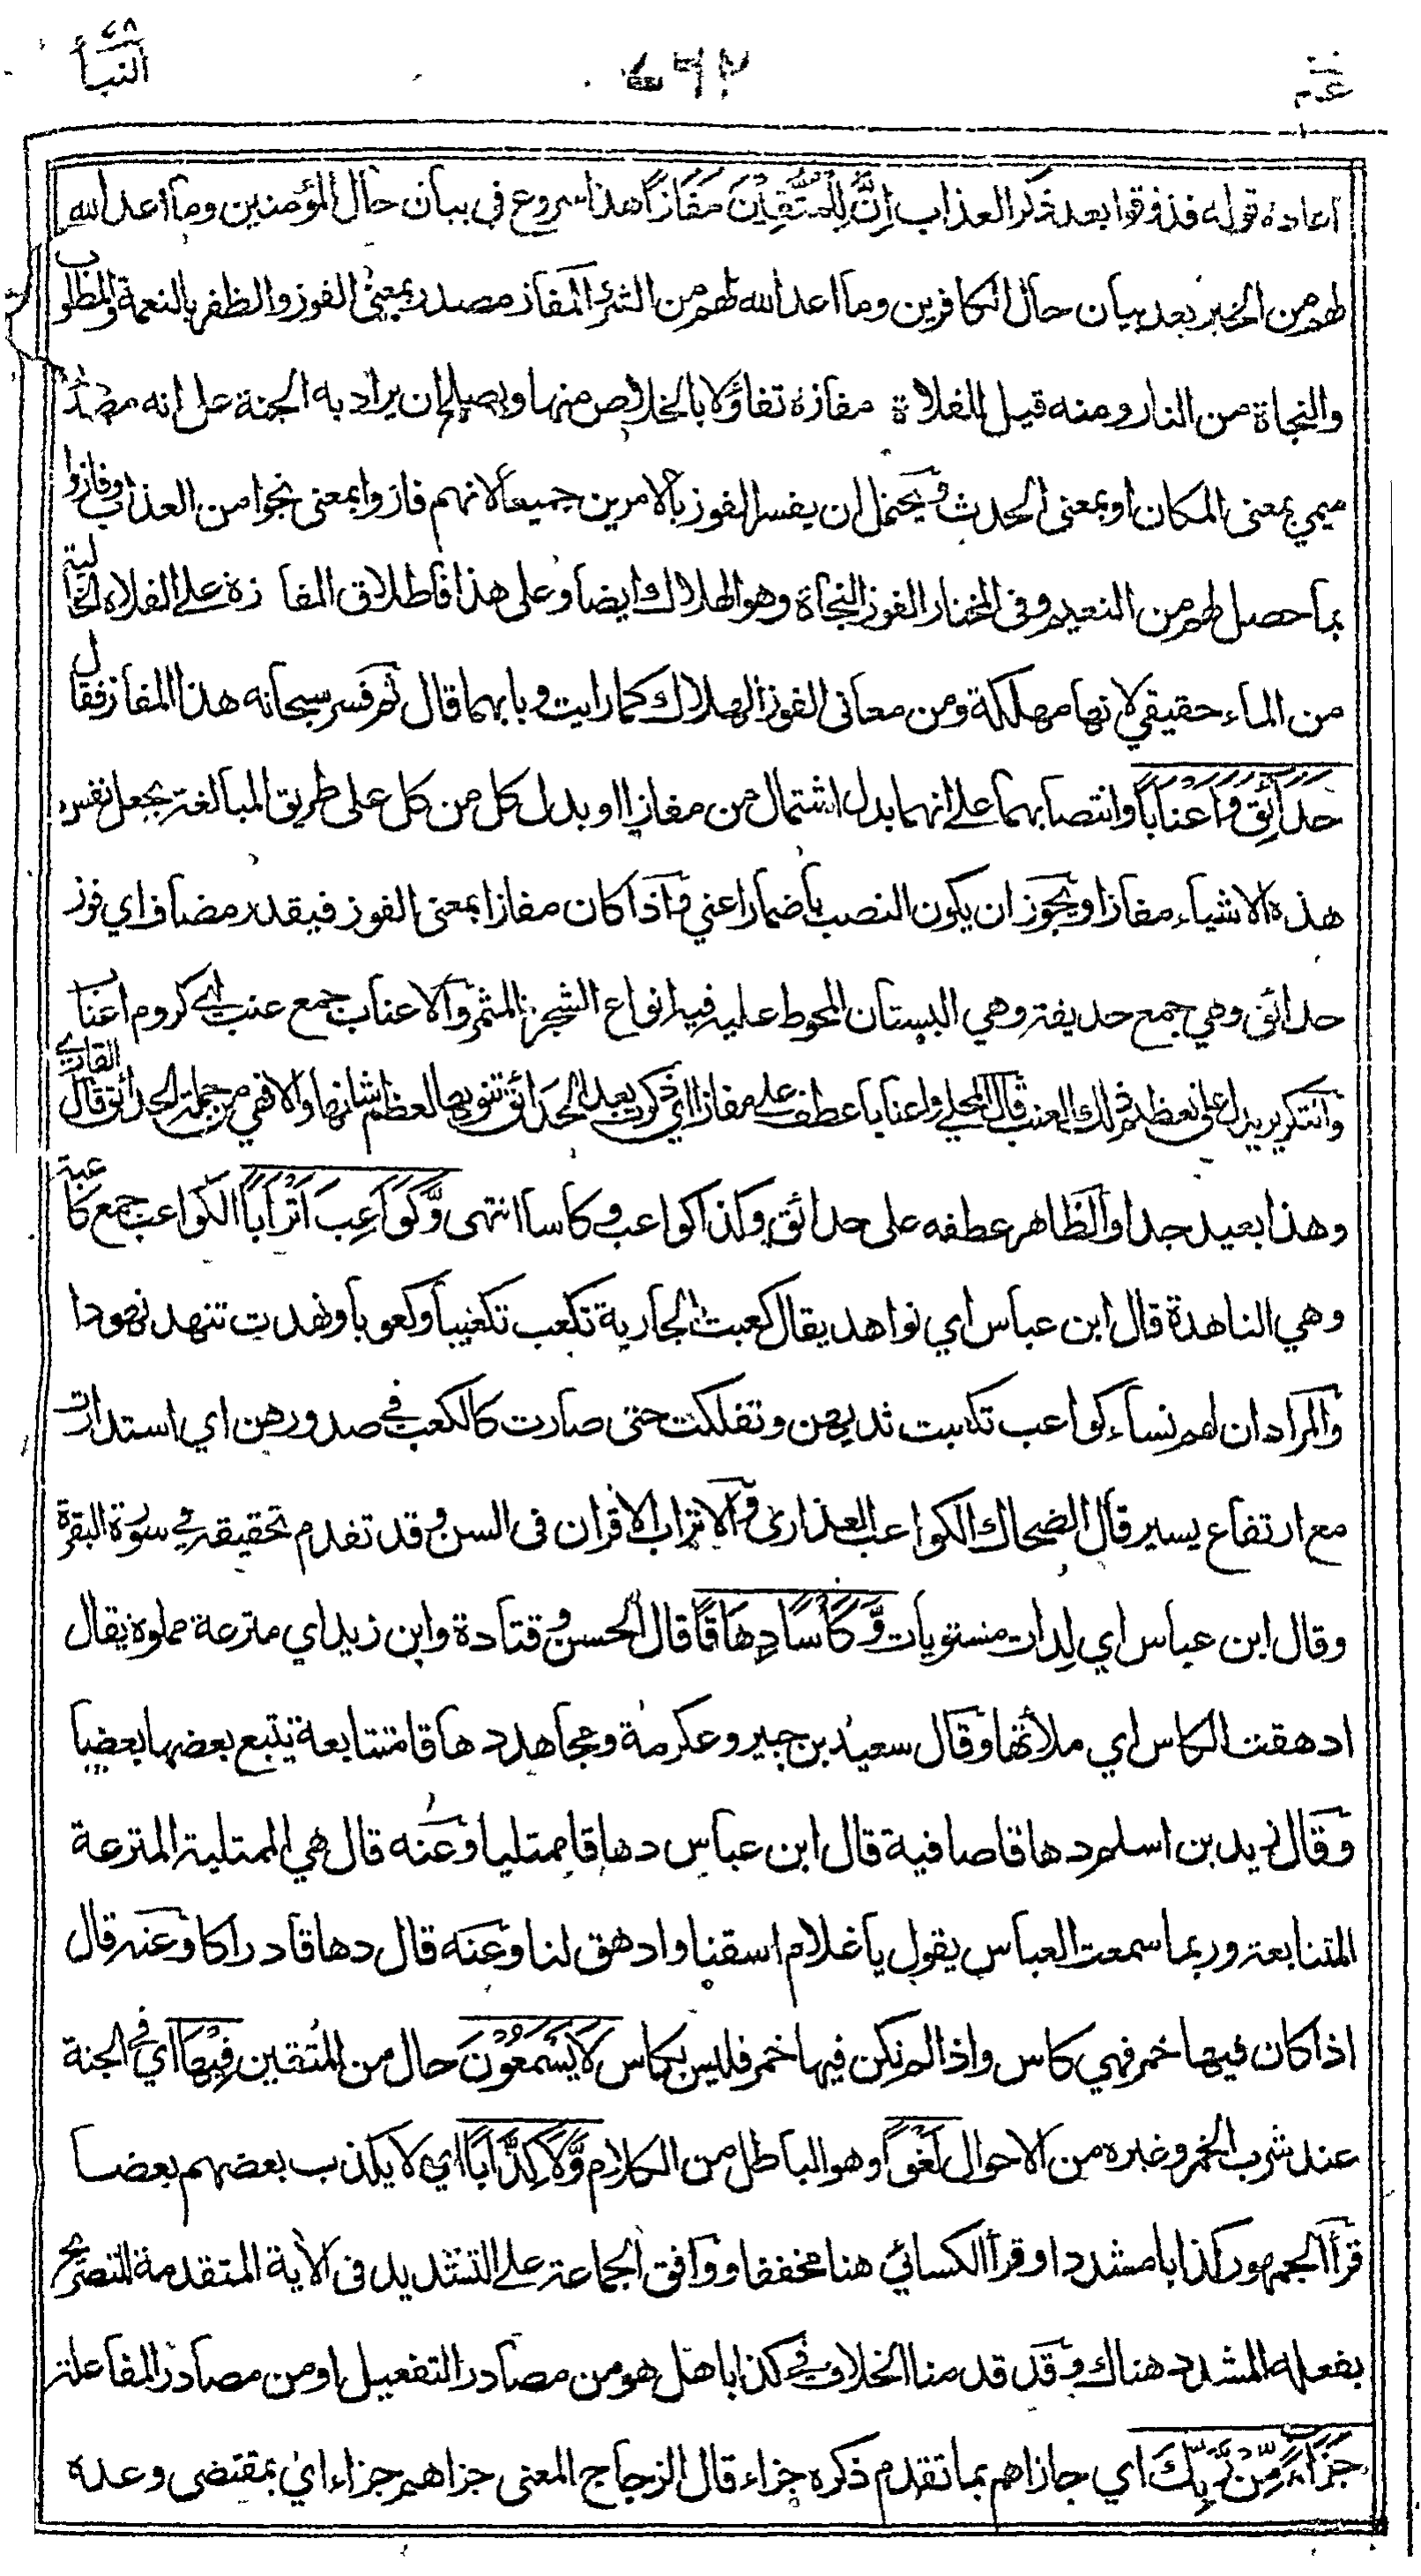 عم ٢٦٢ النبأ ٧٨
اعادة قوله فذوقوا بعد ذكر العذاب اِنَّ لِلْمُتَّقِيْنَ مَفَازًا هذا شروع في بيان حال المؤمنين وما اعد الله
لهم من الخير بعد بيان حال الكافرين وما اعد الله لهم من الشر المفاز مصدر بمعنى الفوز والظفر بالنعمة والمطلوب
والنجاة من النار ومنه قيل للفلاة مفازة تفاؤلا بالخلاص منها ويصلح ان يراد به الجنة على انه مصدر
ميمي بمعنى المكان او بمعنى الحدث ويحتمل ان يفسر الفوز بالامرين جميعا لانهم فازوا بمعنى نجوا من العذاب وفازوا
بما حصل لهم من النعيم وفي المختار الفوز النجاة وهو الهلاك ايضا وعلى هذا فاطلاق المفازة على الفلاة الخالية
من الماء حقيقي لانها مهلكة ومن معاني الفوز الهلاك كما رايت وبابهما قال ثم فسر سبحانه هذا المفاز فقال
حَدَآئِقَ وَاَعْنَابًا وانتصابهما على انهما بدل اشتمال من مفازا او بدل كل من كل على طريق المبالغة بجعل نفس
هذه الاشياء مفازا ويجوز ان يكون النصب باضمار اعني واذا كان مفازا بمعنى الفوز فيقدر مضاف اي فوز
حدائق وهي جمع حديقة وهي البستان المحوط عليه فيه انواع الشجر المثمر والاعناب جمع عنب اي كروم اعناب
والتنكير يدل على تعظيم ذلك العنب قال المحلي واعنابا عطف على مفازا اي ذكرت بعد الحدائق تنويها لعظم شانها والا فهي من جملة الحدائق قال القاري
وهذا بعيد جدا والظاهر عطفه على حدائق وكذا كواعب وكاسا انتهى وَّكَوَاعِبَ اَتْرَابًا الكواعب جمع كاعبة
وهي الناهدة قال ابن عباس اي نواهد يقال كعبت الجارية تكعب تكعيبا وكعوبا ونهدت تنهد نهودا
والمراد ان لهم نساء كواعب تكعبت ثديهن وتفلكت حتى صارت كالكعب في صدورهن اي استدارت
مع ارتفاع يسير قال الضحاك الكواعب العذارى والاتراب الاقران في السن وقد تقدم تحقيقه في سورة البقرة
وقال ابن عباس اي لِدات مستويات وَّكَاْسًا دِهَاقًا قال الحسن وقتادة وابن زيد اي مترعة مملوة يقال
ادهقت الكاس اي ملأتها وقال سعيد بن جبير وعكرمة ومجاهد دهاقا متتابعة يتبع بعضها بعضا
وقال زيد بن اسلم دهاقا صافية قال ابن عباس دهاقا ممتليا وعنه قال هي الممتلية المترعة
المتتابعة وربما سمعت العباس يقول يا غلام اسقنا وادهق لنا وعنه قال دهاقا دراكا وعنه قال
اذا كان فيها خمر فهي كاس واذا لم تكن فيها خمر فليس بكاس لَا يَسْمَعُوْنَ حال من المتقين فِيْهَا اي في الجنة
عند شرب الخمر وغيره من الاحوال لَغْوًا وهو الباطل من الكلام وَّلَا كِذَّابًا اي لا يكذب بعضهم بعضا
قرأ الجمهور كذابا مشددا وقرأ الكسائي هنا مخففا ووافق الجماعة على التشديد في الاية المتقدمة للتصريح
بفعله المشدد هناك وقد قدمنا الخلاف في كذابا هل هو من مصادر التفعيل او من مصادر المفاعلة
جَزَآءً مِّنْ رَّبِّكَ اي جازاهم بما تقدم ذكره جزاء قال الزجاج المعنى جزاهم جزاء اي بمقتضى وعده